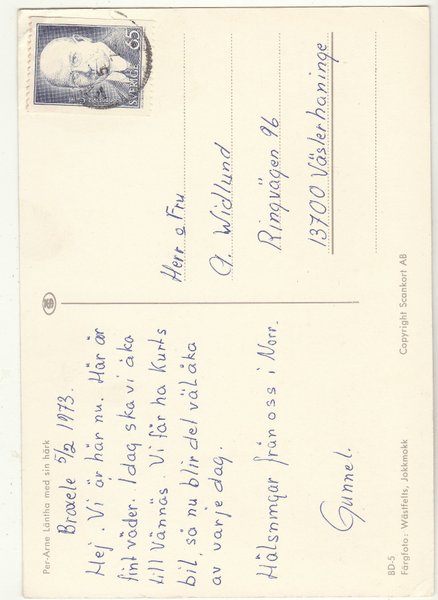 Per-Arne Läntha med sin härk
Braxele 5/2 1973.
Hej. Vi är här nu. Här är
fint väder. Idag ska vi åka
till Vännäs. Vi får ha Kurts
bil, så nu blir del väl åka
av varje dag.
Hälsningar från oss i Norr.
Gunnel.
BD-5
Färgfoto: Wästfelts, Jokkmokk
SVERIGE 65
Herr o Fru
G. Widlund
Ringvägen 96
13700 Västerhaninge
Copyright Scankort AB